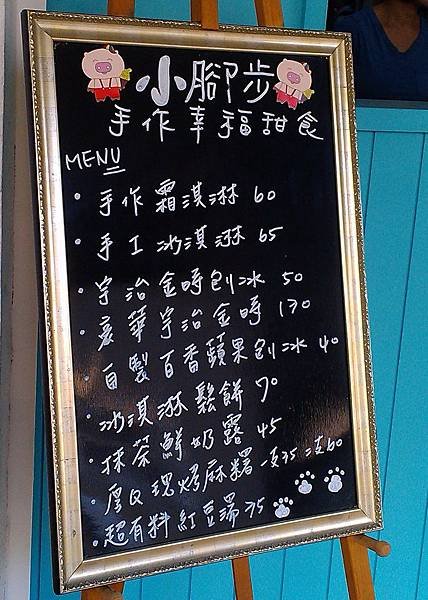 小腳步
手作幸福甜食
MENU
· 手作霜淇淋 60
· 手工冰淇淋 65
· 宇治金時刨冰 50
· 豪華宇治金時 170
· 自製百香蘋果刨冰 40
· 冰淇淋鬆餅 70
· 抹茶鮮奶露 45
· 厚Q現烤麻糬 一支35 二支60
· 超有料紅豆湯 35